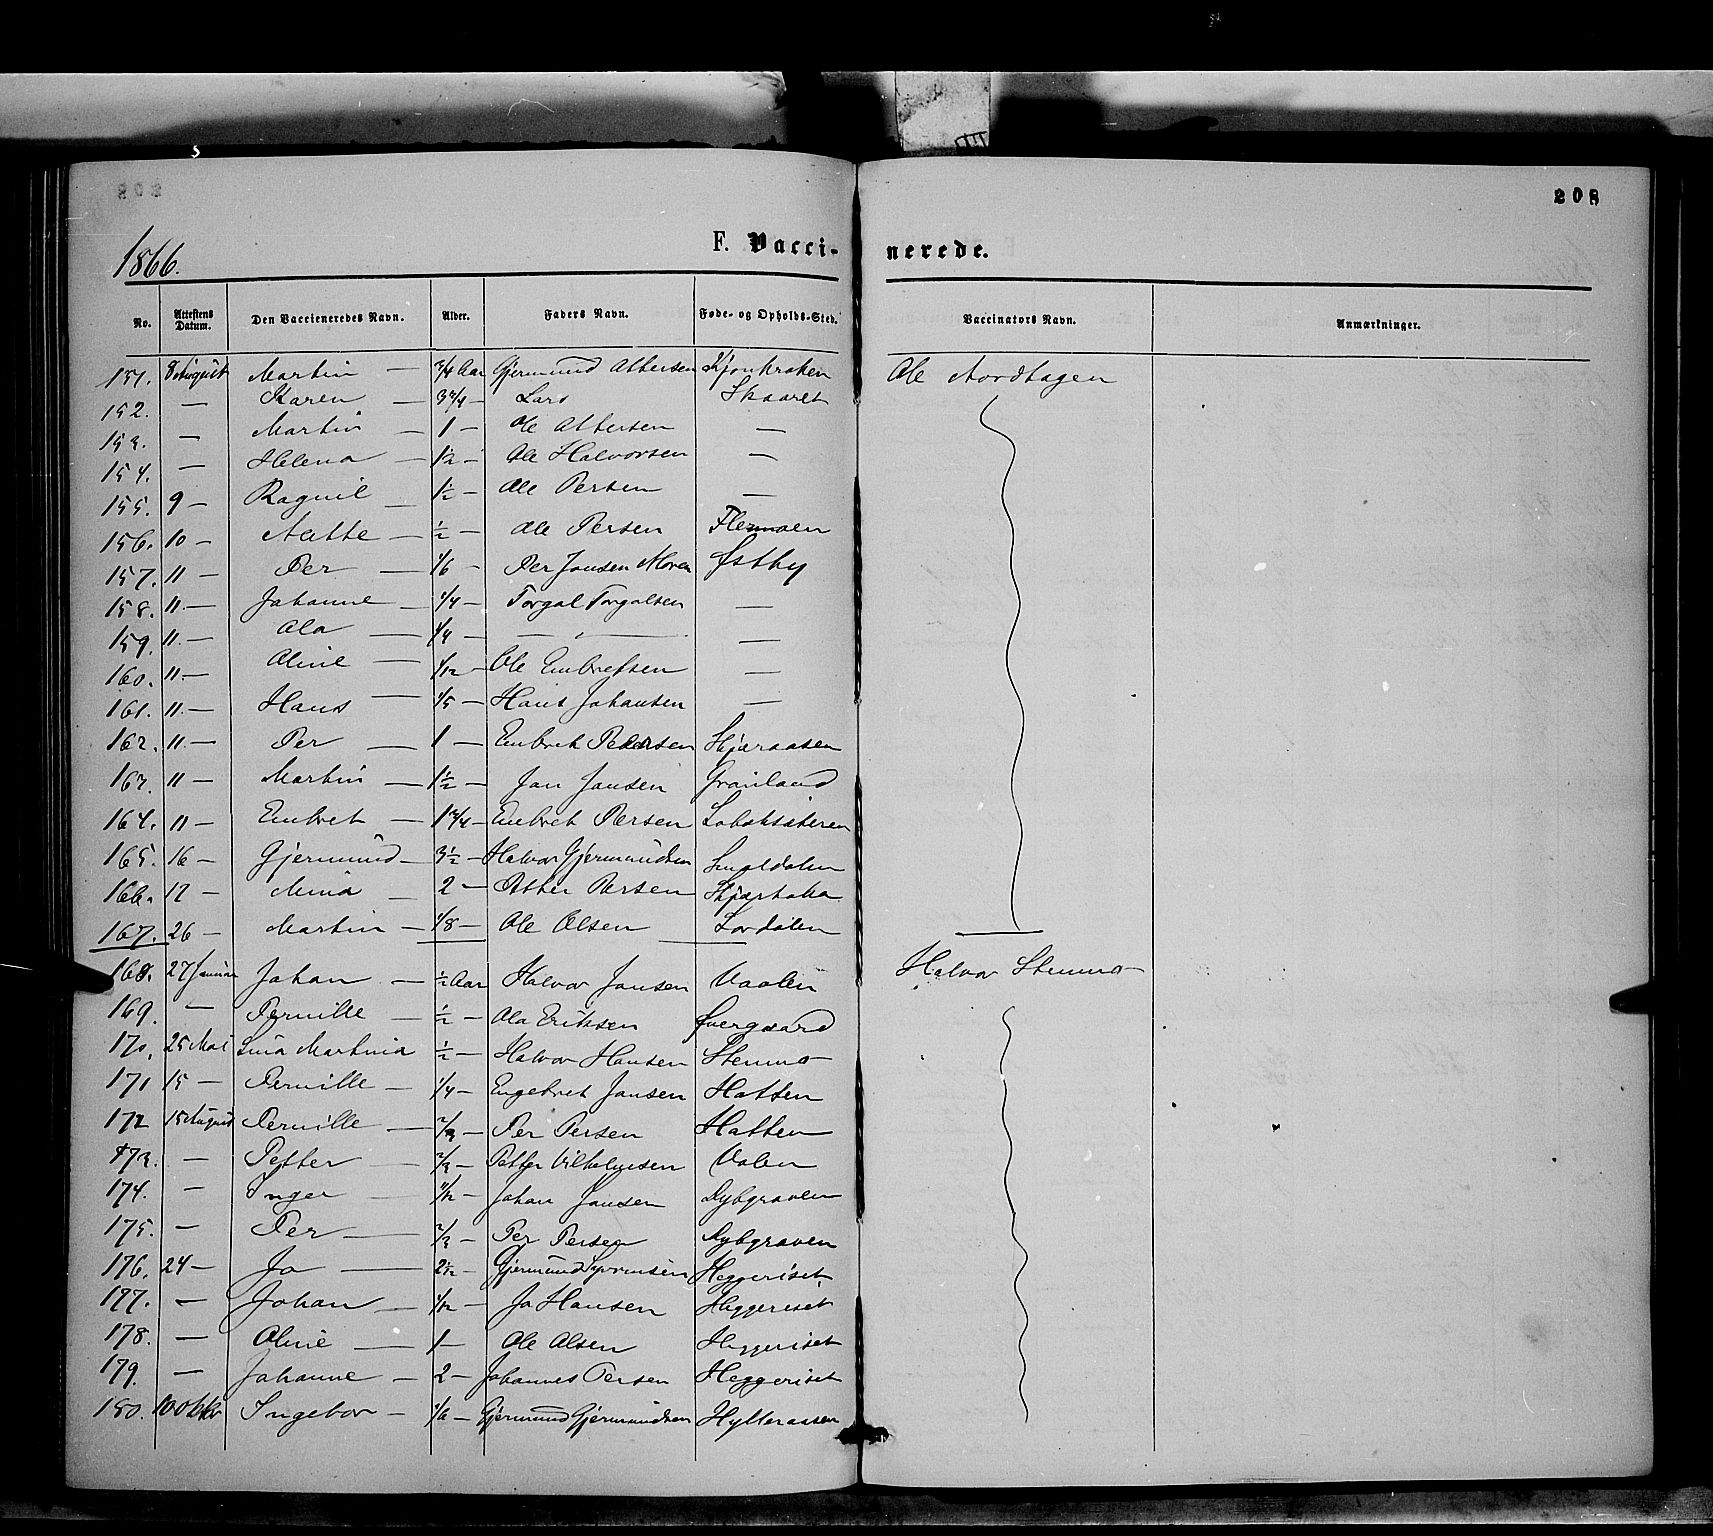 208
1866.
F. Vacci-
nerede.
No. Attestens Datum. Den Vaccieneredes Navn. Alder. Faders Navn. Føde- og Opholds-Sted. Vaccinators Navn. Anmærkninger.
151. 8 August Martin — 3/4 Aar Gjermund Attersen Ole Nordhagen
152. — Karen — 3 3/4 — Lars Skaaret
153. — Martin — 1 — Ole Attersen —
154. — Helena — 1 1/2 — Ole Halvorsen —
155. 9 — Ragnil — 1 1/2 — Ole Persen —
156. 10 — Mette — 1/2 — Ole Persen Flermoen
157. 11 — Per — 1/6 — Per Jonsen Moren Østby
158. 11 — Johanne — 1/4 — Torgal Torgalsen —
159. 11 — Ola — 1/4 — — —
160. 11 — Oline — 1/12 — Ole Embretsen —
161. 11 — Hans — 1/5 — Hans Johansen —
162. 11 — Per — 1 — Embret Pedersen Skjæraasen
163. 11 — Martin — 1 1/2 — Jon Jonsen Grønland
164. 11 — Embret — 1 3/4 — Embret Persen
165. 16 — Gjermund — 3 1/2 — Halvor Gjermundsen
166. 17 — Mina — 2 — Petter Persen
167. 26 — Martin — 1/8 — Ole Olsen Lordalen
168. 27 Januar Johan — 1/2 Aar Halvor Jonsen Vaalen Halvor Stenmo
169. — Pernille — 1/2 — Ola Eriksen Øvergaard
170. 25 Mai Martinia 1/2 — Halvor Hansen Stenmo
171 15 — Pernille — 1/4 — Engebret Jonsen Hatten
172 15 August Pernille — 2/3 — Per Persen Hatten
173. — Petter — 2/3 — Petter Vilhelmsen Volen
174. — Inger — 11/12 — Johan Jonsen Dybgraven
175. — Per — 2/3 — Per Persen Dybgraven
176. 24 — Jo — 2 1/2 — Gjermund Heggeriset
177. — Johan — 1/12 — Jo Hansen Heggeriset
178. — Oline — 1 — Ole Olsen Heggeriset
179. — Johanne — 2 — Johannes Persen Heggeriset
180. 10 Oktbr Ingebor — 1/6 — Gjermund Gjermundsen Hylleraasen